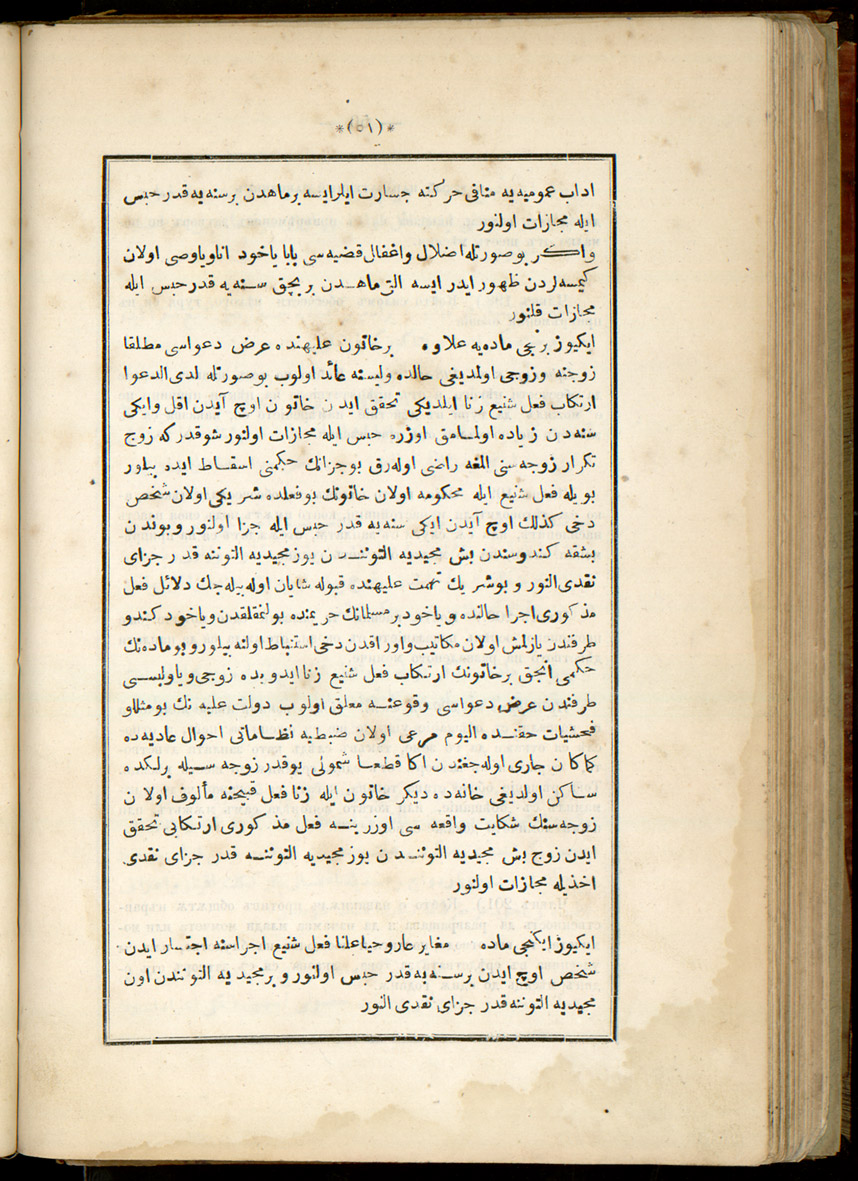 *(٥١)*
اداب عموميه‌يه منافى حركته جسارت ايلرايسه برماهدن برسنه‌يه قدر حبس
ايله مجازات اولنور
واكر بوصورتله اضلال واغفال قضيه‌سى بابا ياخود اناوياوصى اولان
كيمسه‌لردن ظهور ايدر ايسه التى ماهدن بر بچق سنه‌يه قدر حبس ايله
مجازات قلنور
ايكيوز برنجى ماده‌يه علاوه برخاتون عليهنده عرض دعواسى مطلقا
زوجنه وزوجى اولمديغى حالده وليسنه عائد اولوب بوصورتله لدى الدعوا
ارتكاب فعل شنيع زنا ايلديكى تحقق ايدن خاتون اوچ آيدن اقل وايكى
سنه‌دن زياده اولمامق اوزره حبس ايله مجازات اولنور شوقدركه زوج
تكرار زوجه‌سنى المغه راضى اوله‌رق بوجزانك حكمنى اسقاط ايده بيلور
بويله فعل شنيع ايله محكومه اولان خاتونك بوفعلده شريكى اولان شخص
دخى كذلك اوچ آيدن ايكى سنه‌يه قدر حبس ايله جزا اولنور وبوندن
بشقه كندوسندن بش مجيديه التوننـدن يوز مجيديه التوننه قدر جزاى
نقدى النور وبوشريك تهمت عليهنده قبوله شايان اوله‌بيله‌جك دلائل فعل
مذكورى اجرا حالنده وياخود برمسلمانك حريمنده بولنمقلقدن وياخود كندو
طرفندن يازلمش اولان مكاتيب واوراقدن دخى استنباط اولنه بيلور وبوماده‌نك
حكمى انجق برخاتونك ارتكاب فعل شنيع زنا ايدوبده زوجى وياوليسى
طرفندن عرض دعواسى وقوعنه معلق اولوب دولت عليه‌نك بومثللو
فحشيات حقنده اليوم مرعى اولان ضبطيه نظاماتى احوال عاديه‌ده
كماكان جارى اوله‌جغندن اكا قطعا شمولى يوقدر زوجه‌سيله برلكده
ساكن اولديغى خانه‌ده ديكر خاتون ايله زنا فعل قبيحنه مألوف اولان
زوجه‌سنك شكايت واقعه‌سى اوزرينه فعل مذكورى ارتكابى تحقق
ايدن زوج بش مجيديه التوننـدن يوز مجيديه التوننه قدر جزاى نقدى
اخذيله مجازات اولنور
ايكيوز ايكنجى ماده مغاير عاروحياعلنا فعل شنيع اجراسنه اجتسار ايدن
شخص اوچ ايدن برسنه‌يه قدر حبس اولنور وبرمجيديه التونندن اون
مجيديه التوننه قدر جزاى نقدى النور